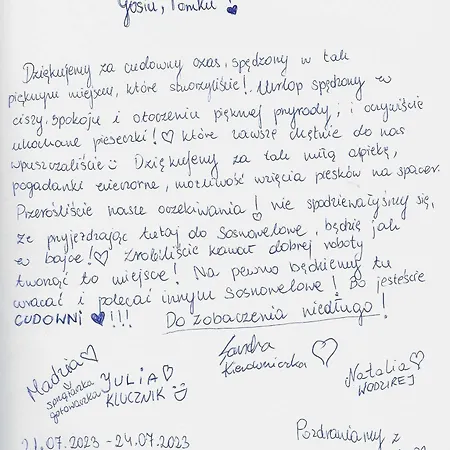 Gosiu, Tomku!
Dziękujemy za cudowny czas, spędzony w tak
pięknym miejscu, które stworzyliście! Urlop spędzony w
ciszy, spokoju i otoczeniu pięknej przyrody, i oczywiście
ukochane pieseczki! ♡ które zawsze chętnie do nas
wpuszczaliście ☺ Dziękujemy za tak miłą opiekę,
pogadanki wieczorne, możliwość wzięcia piesków na spacer.
Przerośliście nasze oczekiwania! nie spodziewałyśmy się,
że przyjeżdżając tutaj do Sosnowelowe, będzie jak
w bajce! ♡ Zrobiliście kawał dobrej roboty
tworząc to miejsce! Na pewno będziemy tu
wracać i polecać innym Sosnowelowe! Bo jesteście
CUDOWNI ♥!!! Do zobaczenia niedługo!
Madzia ♡
sprzątaczka
gotowaczka
YULIA ♡
KLUCZNIK ☺
Sandra
Kierowniczka ♡
Natalia ♡
WODZIREJ
21.07.2023 - 24.07.2023
Pozdrawiamy z